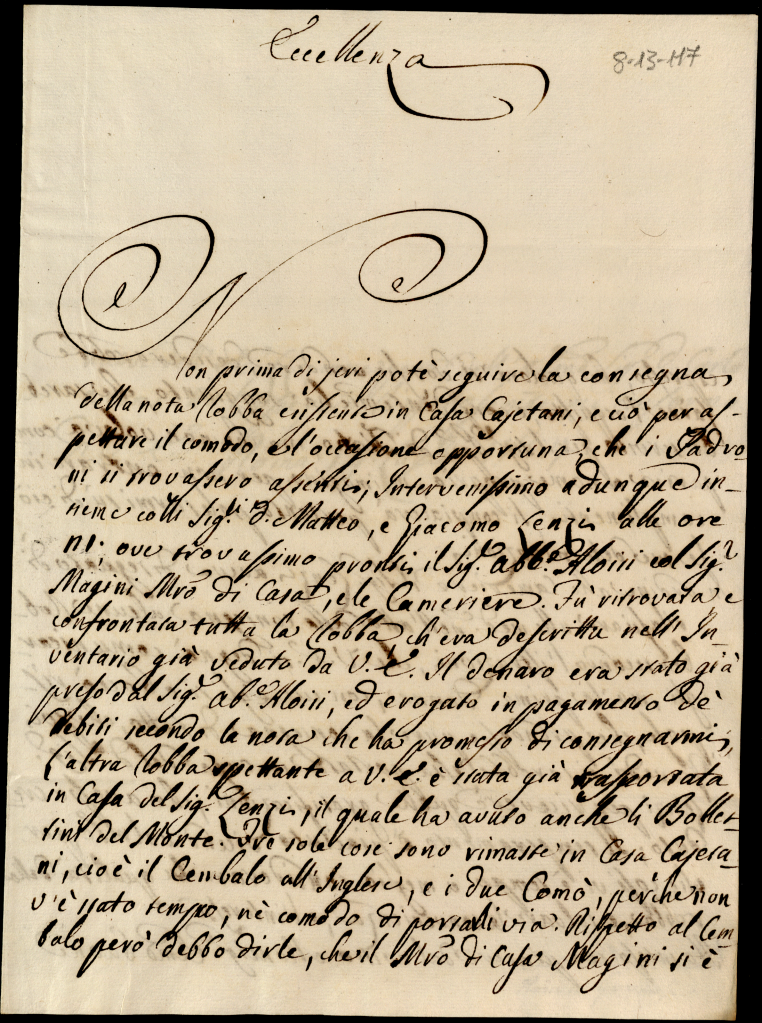 Eccellenza
8-13-117
Non prima di jeri potè seguire la consegna
della nota Robba esistente in Casa Cajetani, e ciò per as-
pettare il comodo, e l'occassione opportuna, che i Padro-
ni si trovassero assenti; Intervenissimo adunque in-
sieme colli Sig.ri d. Matteo, e Giacomo Lenzi alle ore
ove trovassimo pronti il Sig.r Abb.e Aloisi col Sig.r
Magini Mro di Casa, e le Cameriere. Fù ritrovata e
confrontata tutta la Robba, ch'era descritta nell'In-
ventario già veduto da V. E. Il denaro era stato già
preso dal Sig.r Ab.e Aloisi, ed erogato in pagamento dè
debiti secondo la nota che ha promesso di consegnarmi,
l'altra Robba spettante a V. E. è stata già trasportata
in Casa del Sig.r Lenzi, il quale ha avuto anche li Bollet-
tini del Monte. Tre sole cose sono rimaste in Casa Cajeta-
ni, cioè il Cembalo all'Inglese, e i due Comò, perche non
v'è stato tempo, nè comodo di portarli via. Rispetto al Cem-
balo però debbo dirle, che il Mro di Casa Magini si è